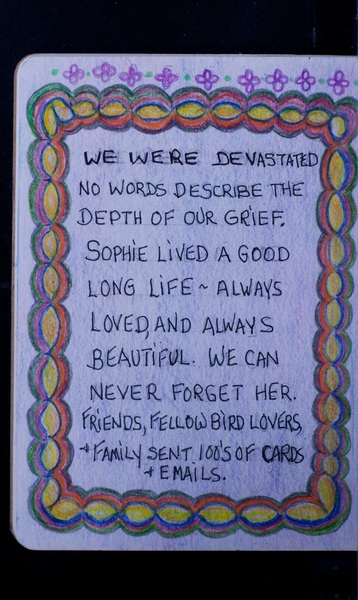 WE WERE DEVASTATED
NO WORDS DESCRIBE THE
DEPTH OF OUR GRIEF.
SOPHIE LIVED A GOOD
LONG LIFE ~ ALWAYS
LOVED, AND ALWAYS
BEAUTIFUL. WE CAN
NEVER FORGET HER.
FRIENDS, FELLOW BIRD LOVERS,
+ FAMILY SENT 100'S OF CARDS
+ EMAILS.